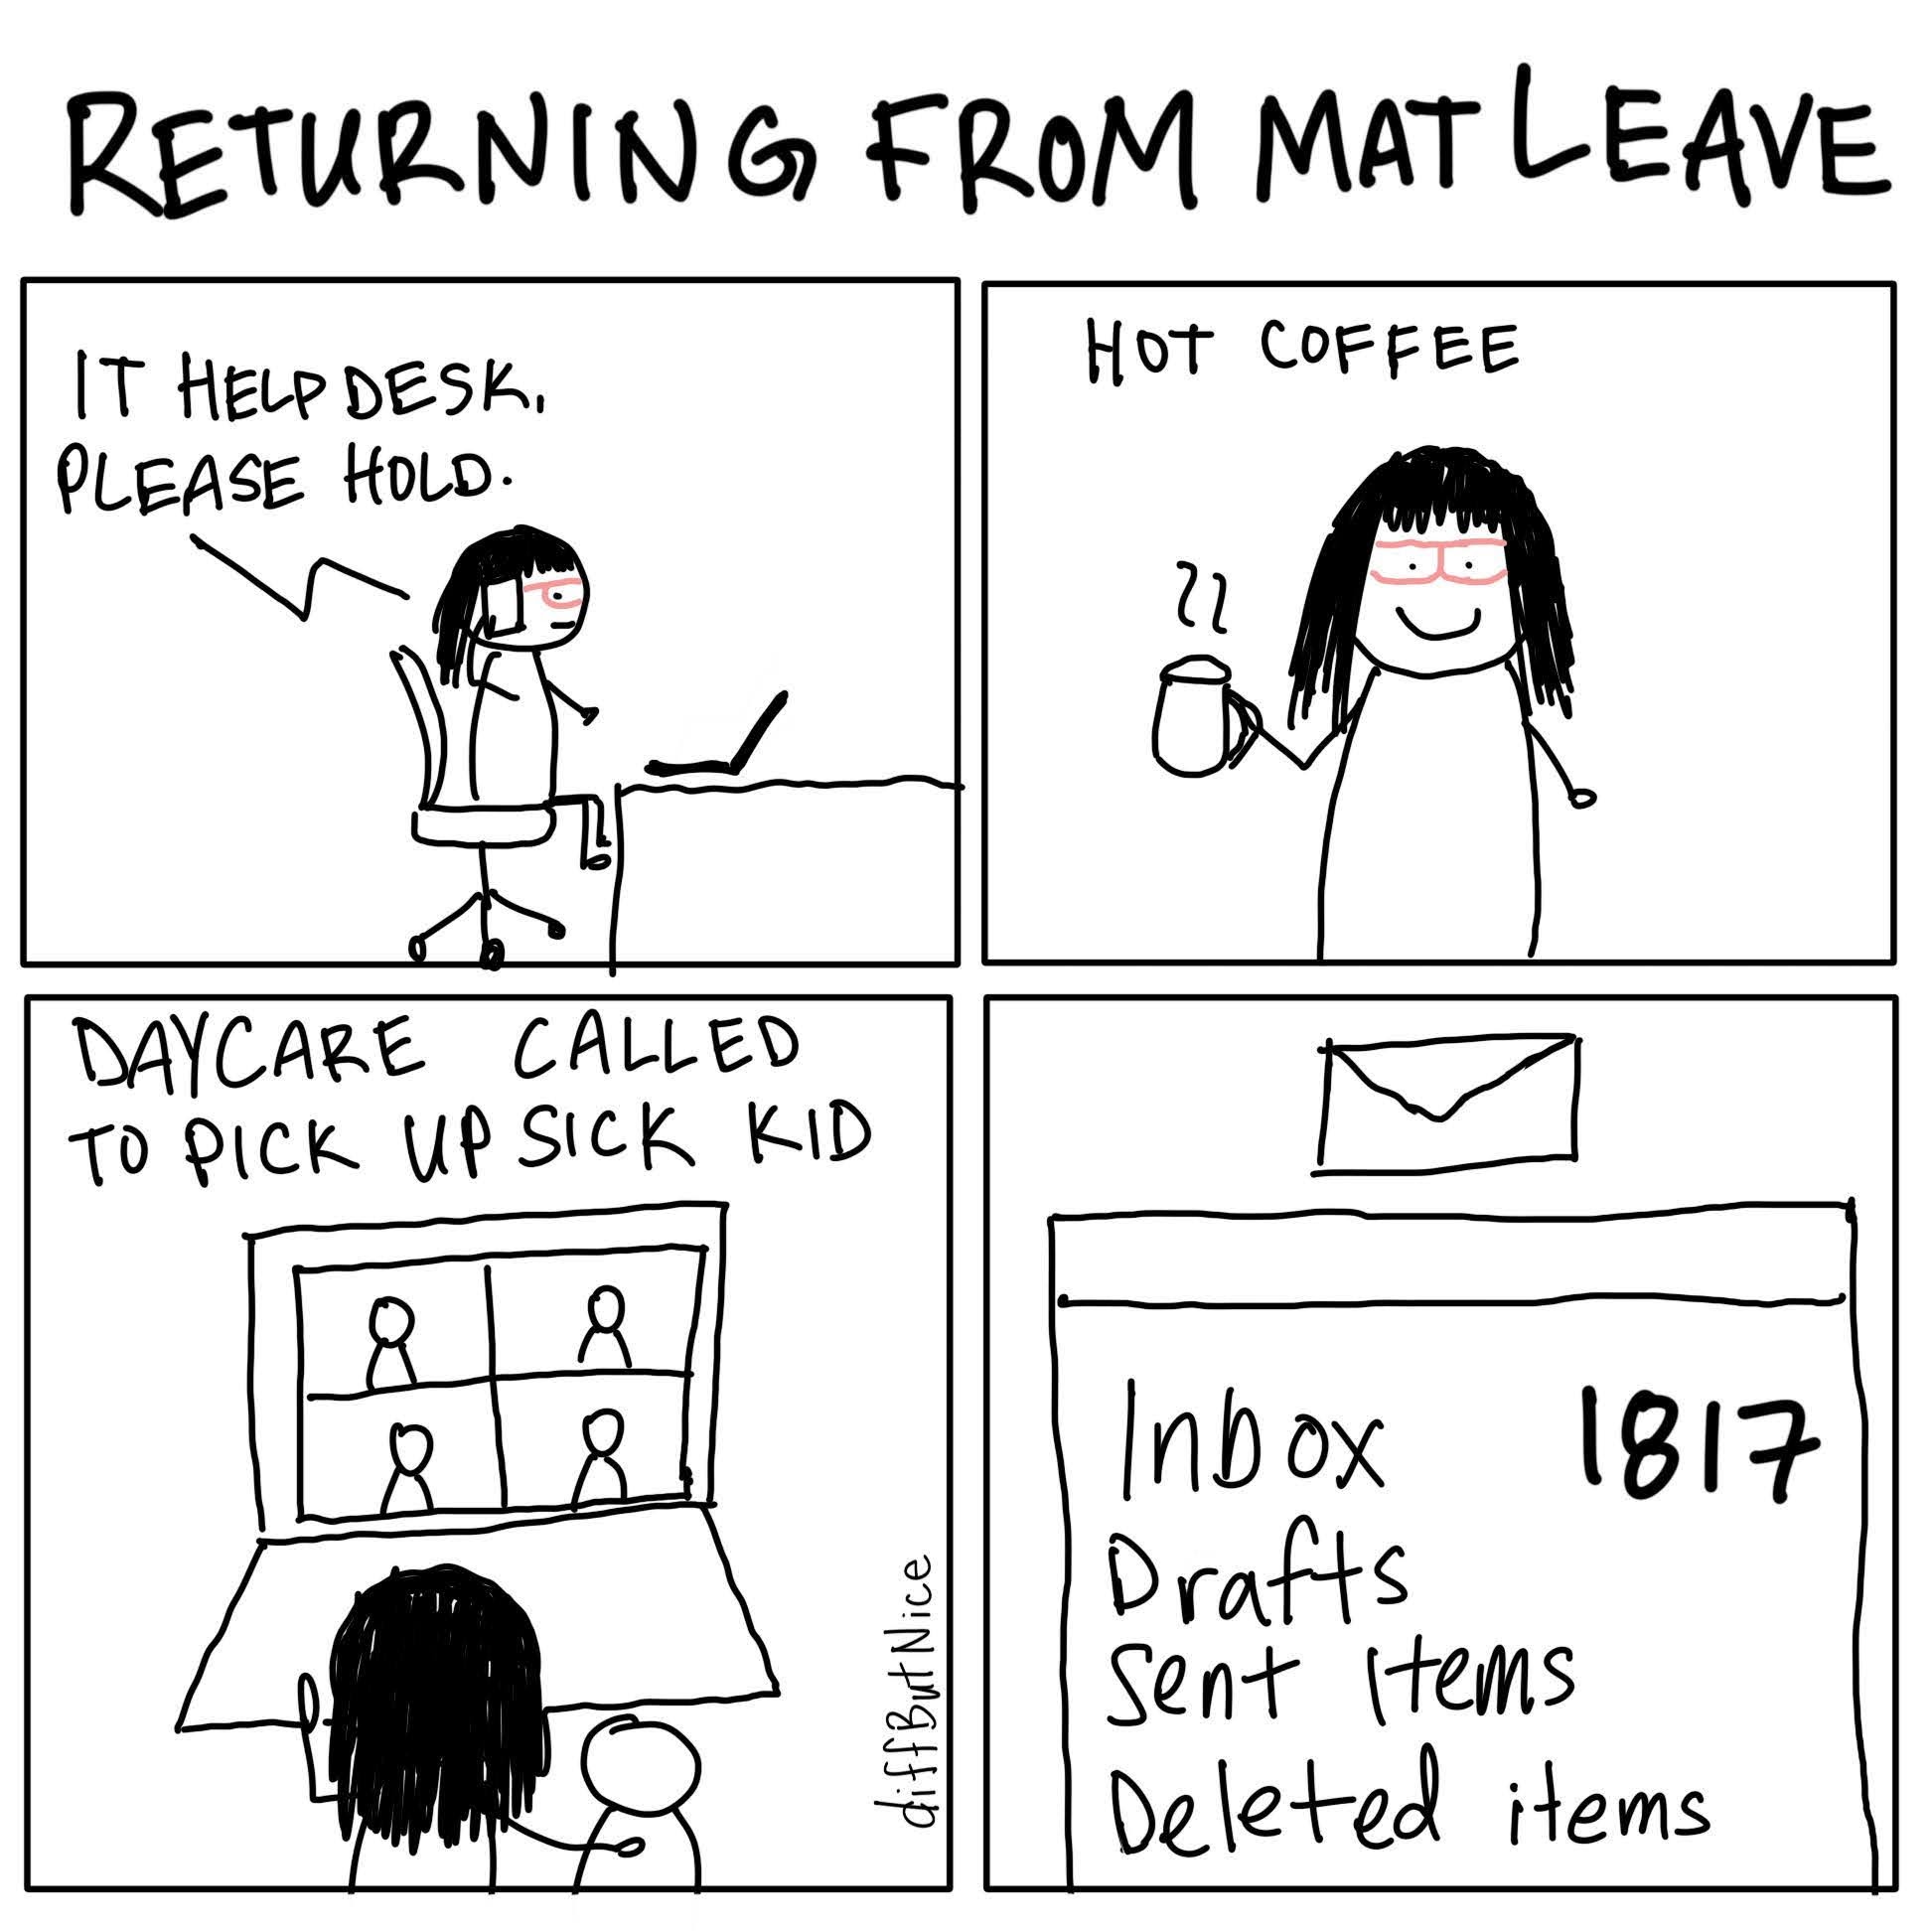 RETURNING FROM MAT LEAVE
IT HELP DESK,
PLEASE HOLD.
HOT COFFEE
DAYCARE CALLED
TO PICK UP SICK KID
diffButNice
Inbox 1817
Drafts
Sent items
Deleted items